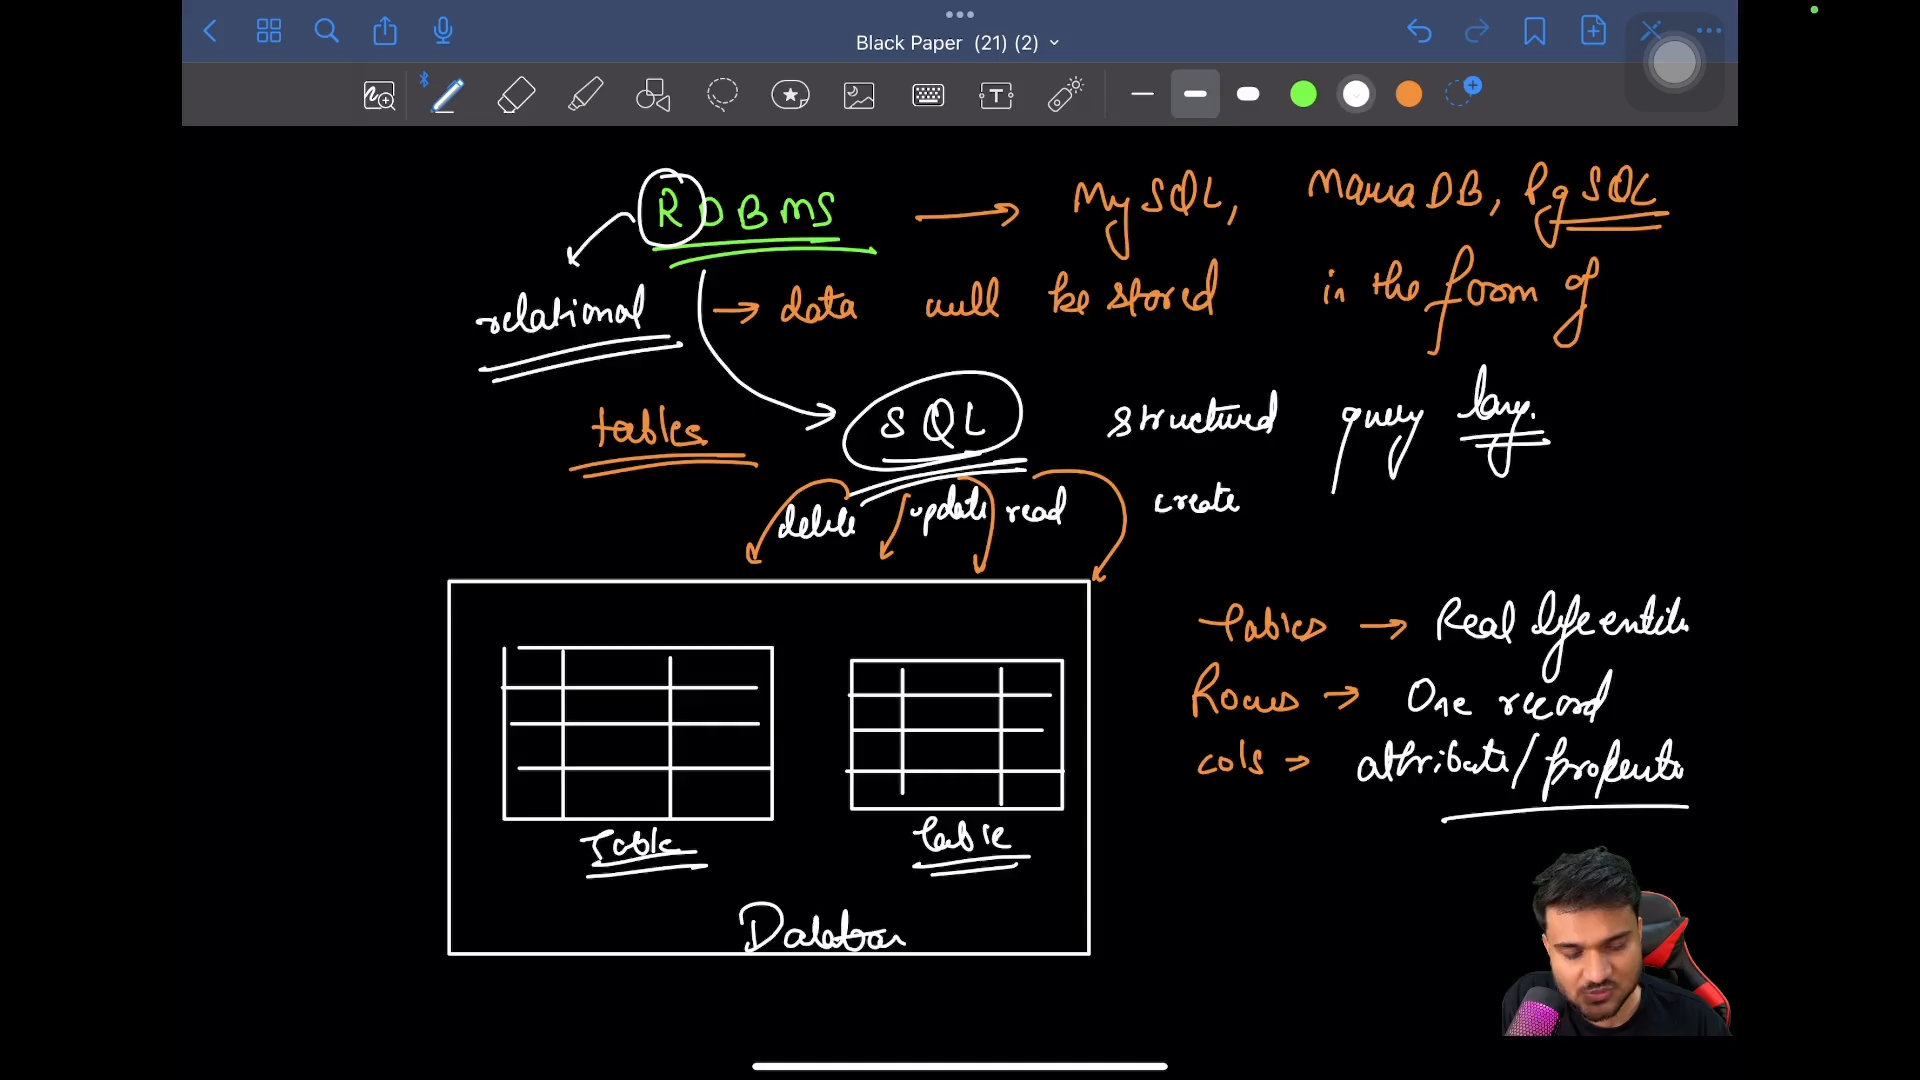 Black Paper (21) (2)
RDBMS → MySQL, MariaDB, PgSQL
relational → data will be stored in the form of
tables SQL structured query lang.
delete update read create
Tables → Real life entities
Rows → One record
cols → attribute/properties
Table Table
Database